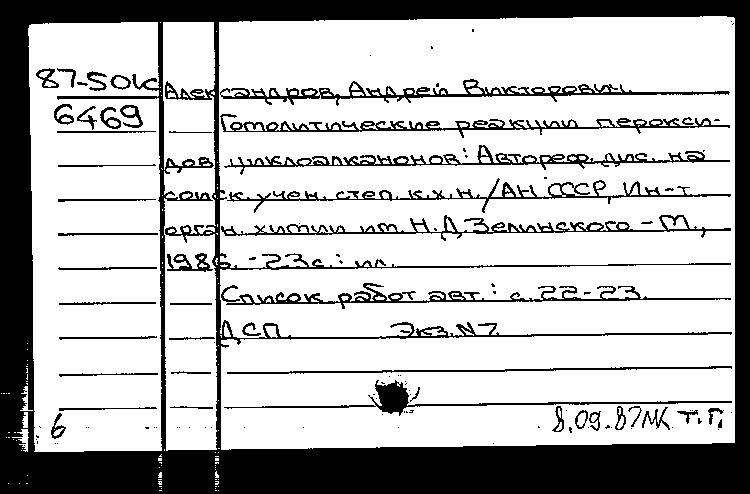 87-501с Александров, Андрей Викторович.
6469 Гомолитические реакции перокси-
дов циклоалканонов: Автореф. дис. на
соиск. учен. степ. к.х.н. /АН СССР, Ин-т
орган. химии им. Н.Д. Зелинского. - М.,
1986. - 23 с.: ил.
Список работ авт.: с. 22-23.
ДСП. Экз. N 7
6 8.09.87 МК Т.Г.